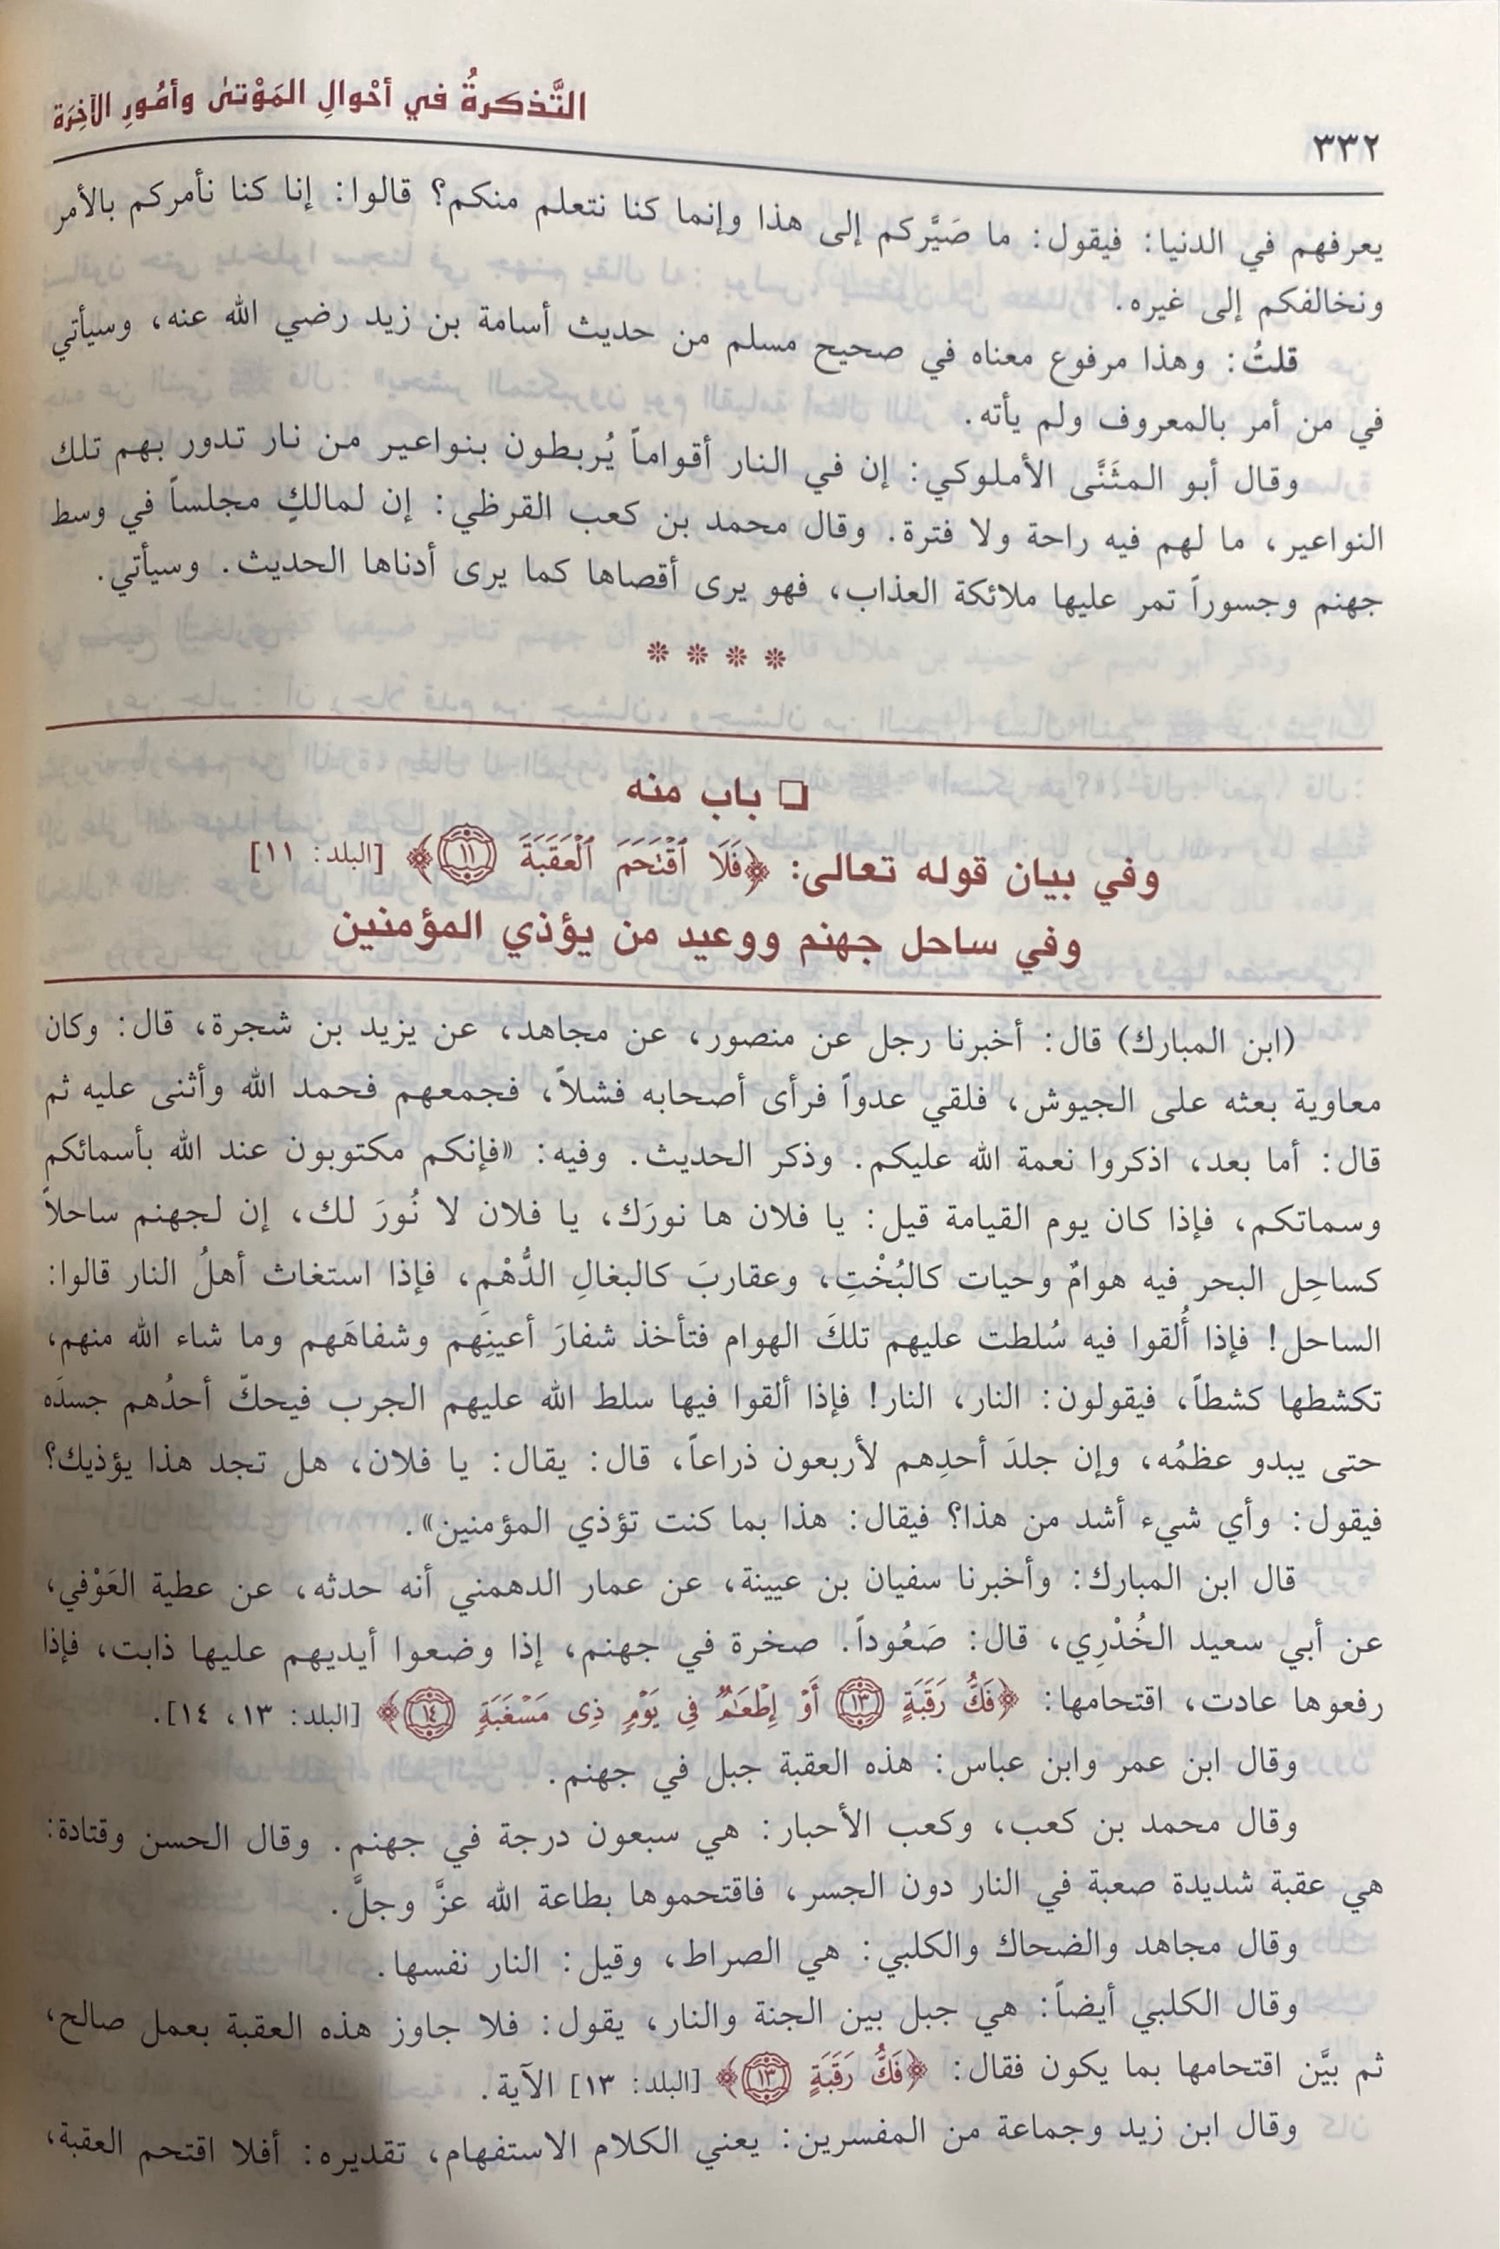 التَّذكرةُ في أحْوالِ المَوْتىٰ وأمُورِ الآخِرَة
٣٣٢
يعرفهم في الدنيا: فيقول: ما صَيَّركم إلى هذا وإنما كنا نتعلم منكم؟ قالوا: إنا كنا نأمركم بالأمر
ونخالفكم إلى غيره.
قلتُ: وهذا مرفوع معناه في صحيح مسلم من حديث أسامة بن زيد رضي الله عنه، وسيأتي
في من أمر بالمعروف ولم يأته.
وقال أبو المثَنَّى الأملوكي: إن في النار أقواماً يُربطون بنواعير من نار تدور بهم تلك
النواعير، ما لهم فيه راحة ولا فترة. وقال محمد بن كعب القرظي: إن لمالكٍ مجلساً في وسط
جهنم وجسوراً تمر عليها ملائكة العذاب، فهو يرى أقصاها كما يرى أدناها الحديث. وسيأتي.
❊ ❊ ❊ ❊
❑ باب منه
وفي بيان قوله تعالى: ﴿فَلَا ٱقۡتَحَمَ ٱلۡعَقَبَةَ ١١﴾ [البلد: ١١]
وفي ساحل جهنم ووعيد من يؤذي المؤمنين
(ابن المبارك) قال: أخبرنا رجل عن منصور، عن مجاهد، عن يزيد بن شجرة، قال: وكان
معاوية بعثه على الجيوش، فلقي عدواً فرأى أصحابه فشلاً، فجمعهم فحمد الله وأثنى عليه ثم
قال: أما بعد، اذكروا نعمة الله عليكم. وذكر الحديث. وفيه: «فإنكم مكتوبون عند الله بأسمائكم
وسماتكم، فإذا كان يوم القيامة قيل: يا فلان ها نورَك، يا فلان لا نُورَ لك، إن لجهنم ساحلاً
كساحِل البحر فيه هوامٌ وحيات كالبُخْتِ، وعقاربَ كالبغالِ الدُّهْمِ، فإذا استغاث أهلُ النار قالوا:
الساحل! فإذا أُلقوا فيه سُلطت عليهم تلكَ الهوام فتأخذ شفارَ أعينِهم وشفاهَهم وما شاء الله منهم،
تكشطها كشطاً، فيقولون: النار، النار! فإذا ألقوا فيها سلط الله عليهم الجرب فيحكّ أحدُهم جسدَه
حتى يبدو عظمُه، وإن جلدَ أحدِهم لأربعون ذراعاً، قال: يقال: يا فلان، هل تجد هذا يؤذيك؟
فيقول: وأي شيء أشد من هذا؟ فيقال: هذا بما كنت تؤذي المؤمنين».
قال ابن المبارك: وأخبرنا سفيان بن عيينة، عن عمار الدهمني أنه حدثه، عن عطية العَوْفي،
عن أبي سعيد الخُدْرِي، قال: صَعُوداً. صخرة في جهنم، إذا وضعوا أيديهم عليها ذابت، فإذا
رفعوها عادت، اقتحامها: ﴿فَكُّ رَقَبَةٍ ١٣ أَوۡ إِطۡعَٰمٌ فِى يَوۡمٍ ذِى مَسۡغَبَةٍ ١٤﴾ [البلد: ١٣، ١٤].
وقال ابن عمر وابن عباس: هذه العقبة جبل في جهنم.
وقال محمد بن كعب، وكعب الأحبار: هي سبعون درجة في جهنم. وقال الحسن وقتادة:
هي عقبة شديدة صعبة في النار دون الجسر، فاقتحموها بطاعة الله عزَّ وجلَّ.
وقال مجاهد والضحاك والكلبي: هي الصراط، وقيل: النار نفسها.
وقال الكلبي أيضاً: هي جبل بين الجنة والنار، يقول: فلا جاوز هذه العقبة بعمل صالح،
ثم بيَّن اقتحامها بما يكون فقال: ﴿فَكُّ رَقَبَةٍ ١٣﴾ [البلد: ١٣] الآية.
وقال ابن زيد وجماعة من المفسرين: يعني الكلام الاستفهام، تقديره: أفلا اقتحم العقبة،